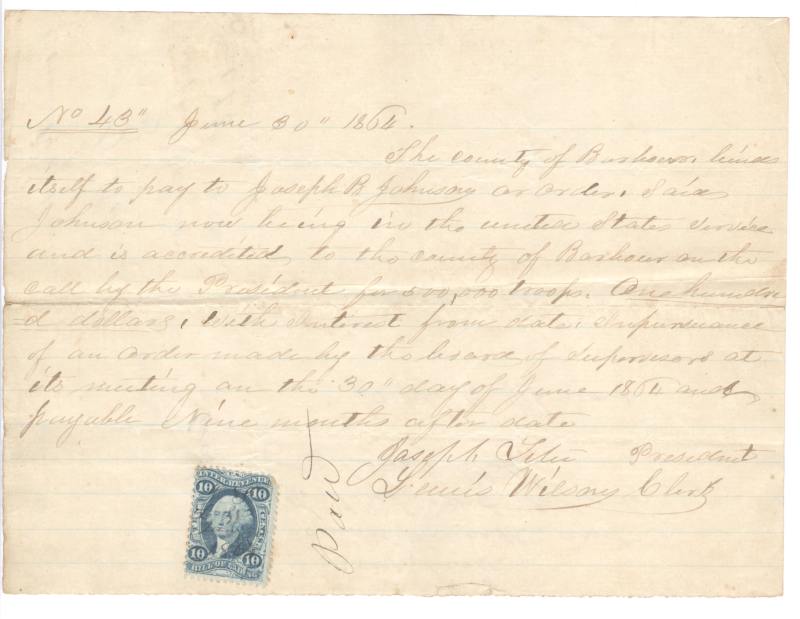 No 43" June 30" 1864.
The county of Barbour, binds
itself to pay to Joseph B Johnson or order, Said
Johnson now being in the united States Service
and is accredited to the county of Barbour on the
call by the President for 500,000 troops. One hundre
d dollars, with interest from date, in pursuance
of an order made by the board of Supervisors at
its meeting on the 30" day of June 1864 and
payable Nine months after date
Joseph Teter President
Lewis Wilson, Clerk
Paid
U.S.
INTER. REVENUE
10 10
TEN CENTS
10 10
BILL OF LADING